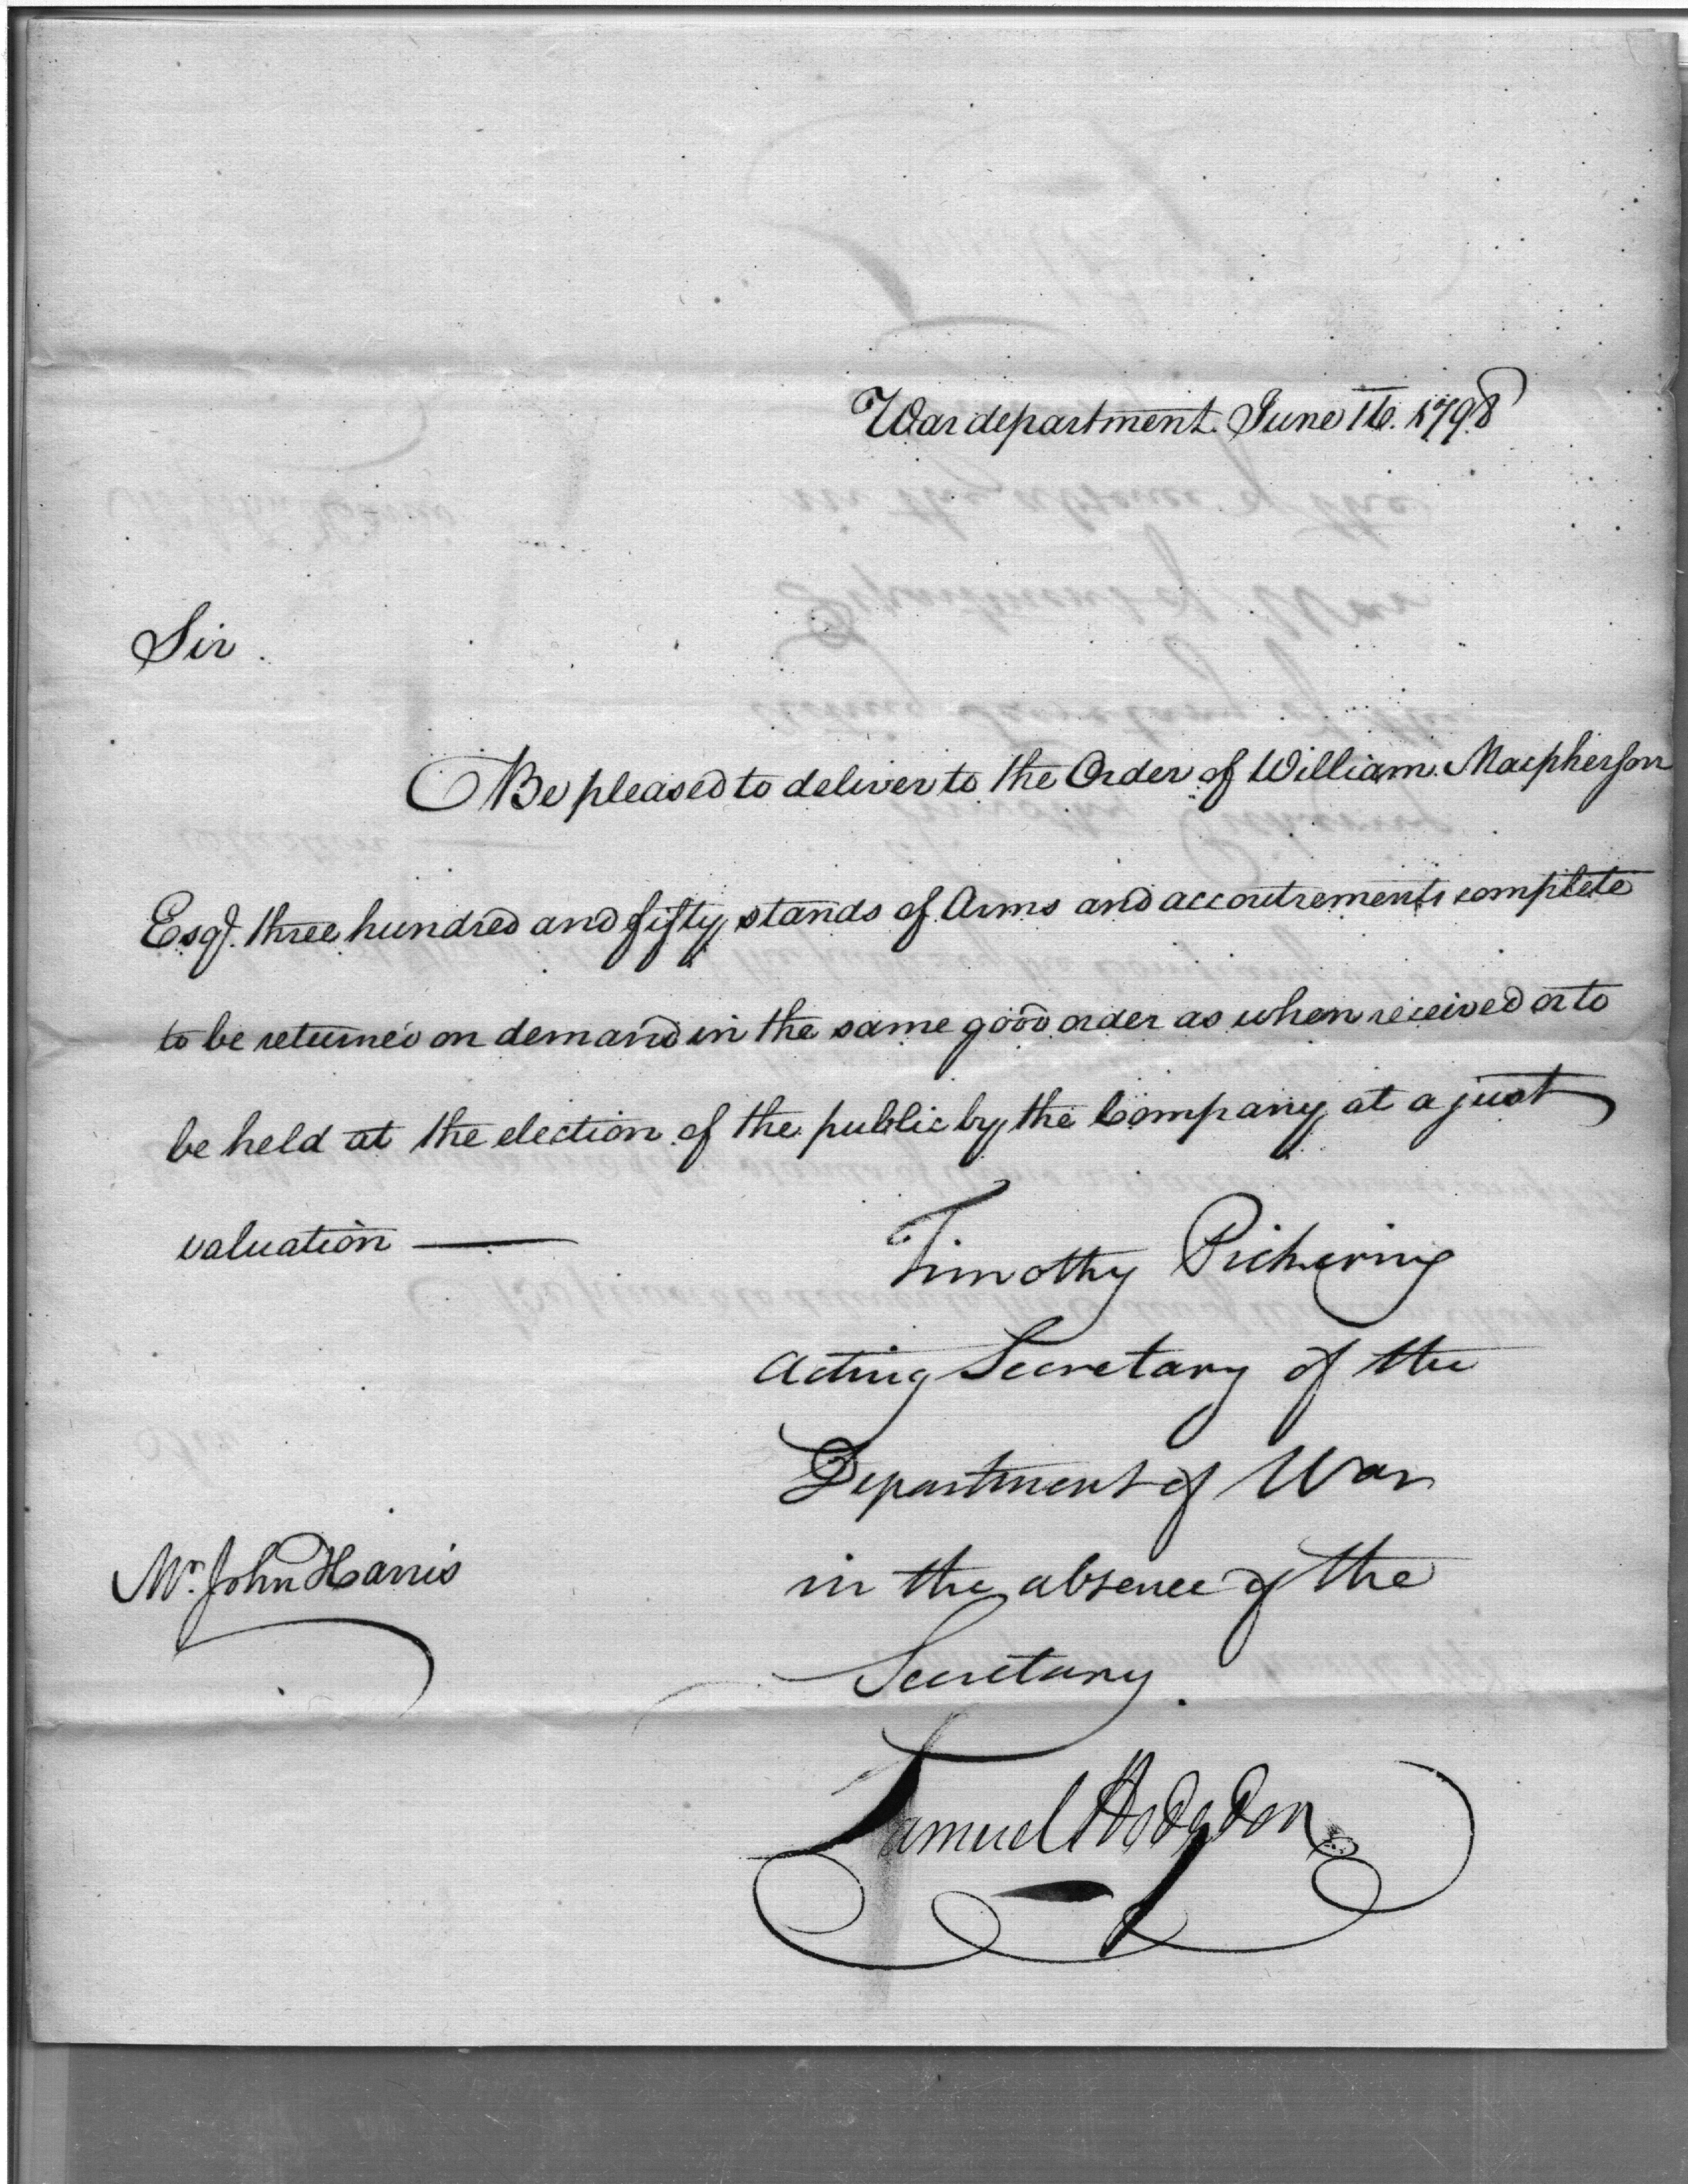 War department June 16. 1798
Sir
Be pleased to deliver to the Order of William Macpherson
Esqr. three hundred and fifty stands of Arms and accoutrements complete
to be returned on demand in the same good order as when received or to
be held at the election of the public by the Company at a just
valuation —
Timothy Pickering
acting Secretary of the
Department of War
Mr. John Harris
in the absence of the
Secretary.
Samuel Hodgdon